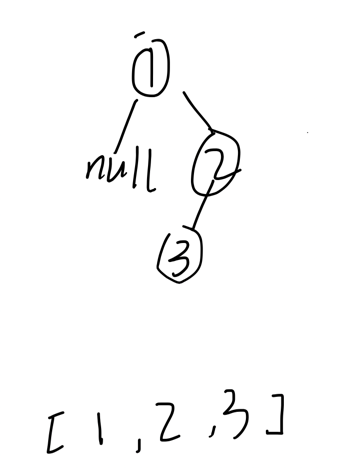 1
null 2
3
[1,2,3]